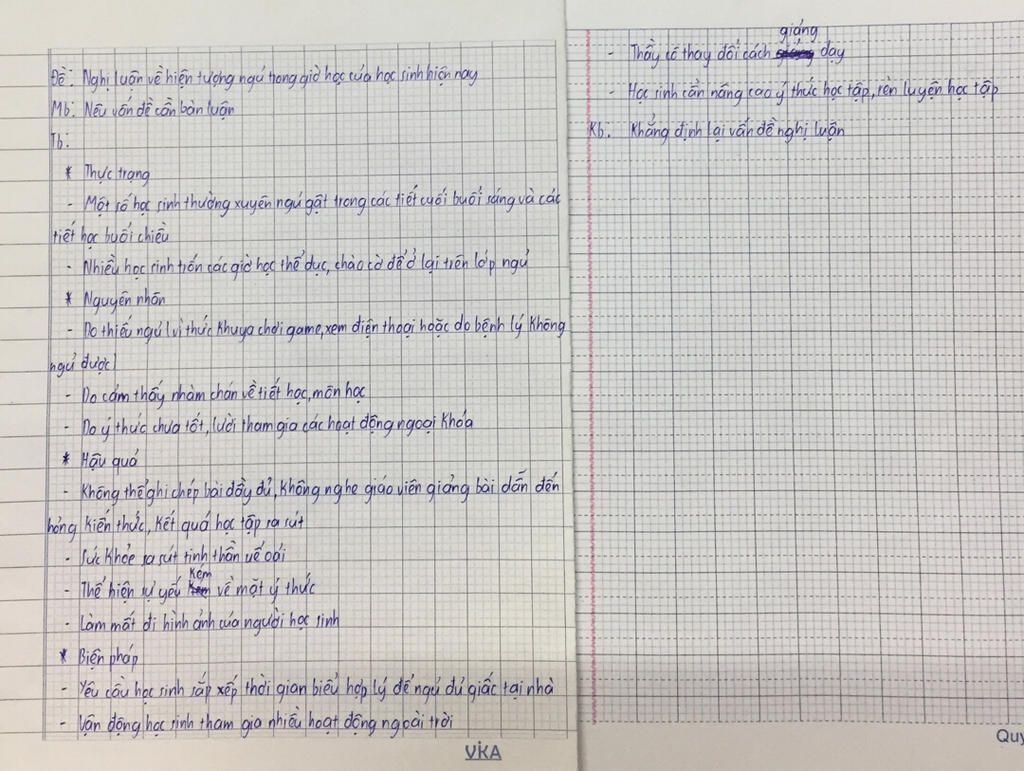 Đề: Nghị luận về hiện tượng ngủ trong giờ học của học sinh hiện nay
Mb: Nêu vấn đề cần bàn luận
Tb:
* Thực trạng
- Một số học sinh thường xuyên ngủ gật trong các tiết cuối buổi sáng và các
tiết học buổi chiều
- Nhiều học sinh trốn các giờ học thể dục, chào cờ để ở lại trên lớp ngủ
* Nguyên nhân
- Do thiếu ngủ (vì thức khuya chơi game, xem điện thoại hoặc do bệnh lý không
ngủ được)
- Do cảm thấy nhàm chán về tiết học, môn học
- Do ý thức chưa tốt, lười tham gia các hoạt động ngoại khóa
* Hậu quả
- Không thể ghi chép bài đầy đủ, không nghe giáo viên giảng bài dẫn đến
hỏng kiến thức, kết quả học tập sa sút
- Sức khỏe sa sút tinh thần uể oải
- Thể hiện sự yếu kém về mặt ý thức
- Làm mất đi hình ảnh của người học sinh
* Biện pháp
- Yêu cầu học sinh sắp xếp thời gian biểu hợp lý để ngủ đủ giấc tại nhà
- Vận động học sinh tham gia nhiều hoạt động ngoài trời
VIKA
- Thầy cô thay đổi cách giảng dạy
- Học sinh cần nâng cao ý thức học tập, rèn luyện học tập
Kb. Khẳng định lại vấn đề nghị luận
Quy